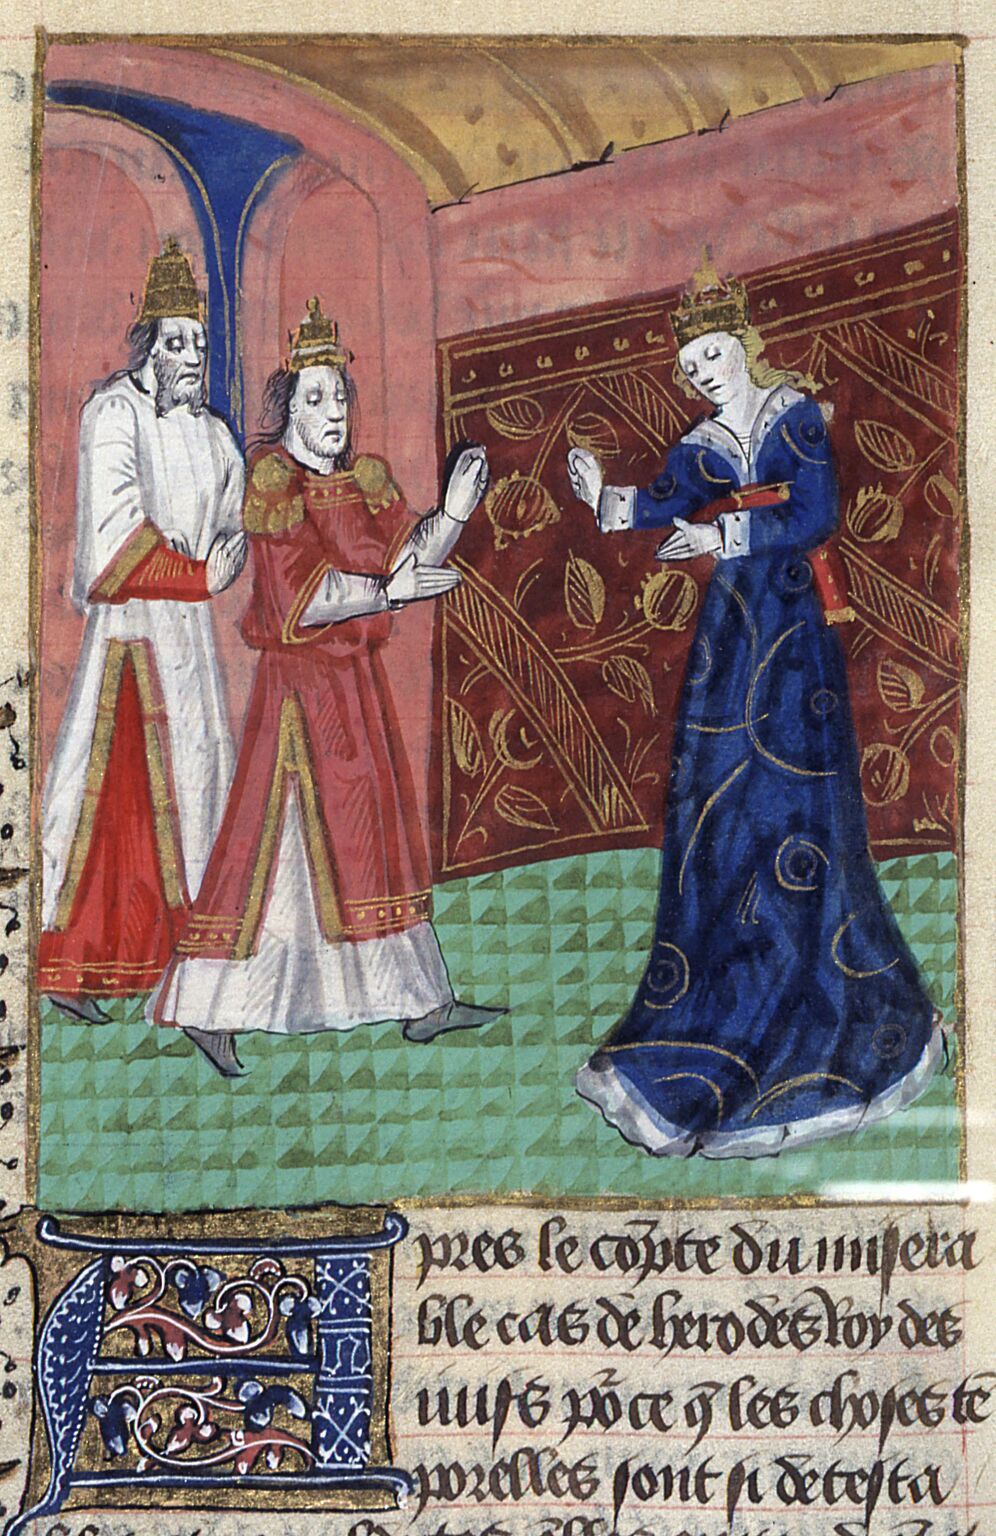 Apres le cõpte du misera
ble cas de herodes Roy des
iuifs põ ce q̃ les choses tẽ
porelles sont si detesta